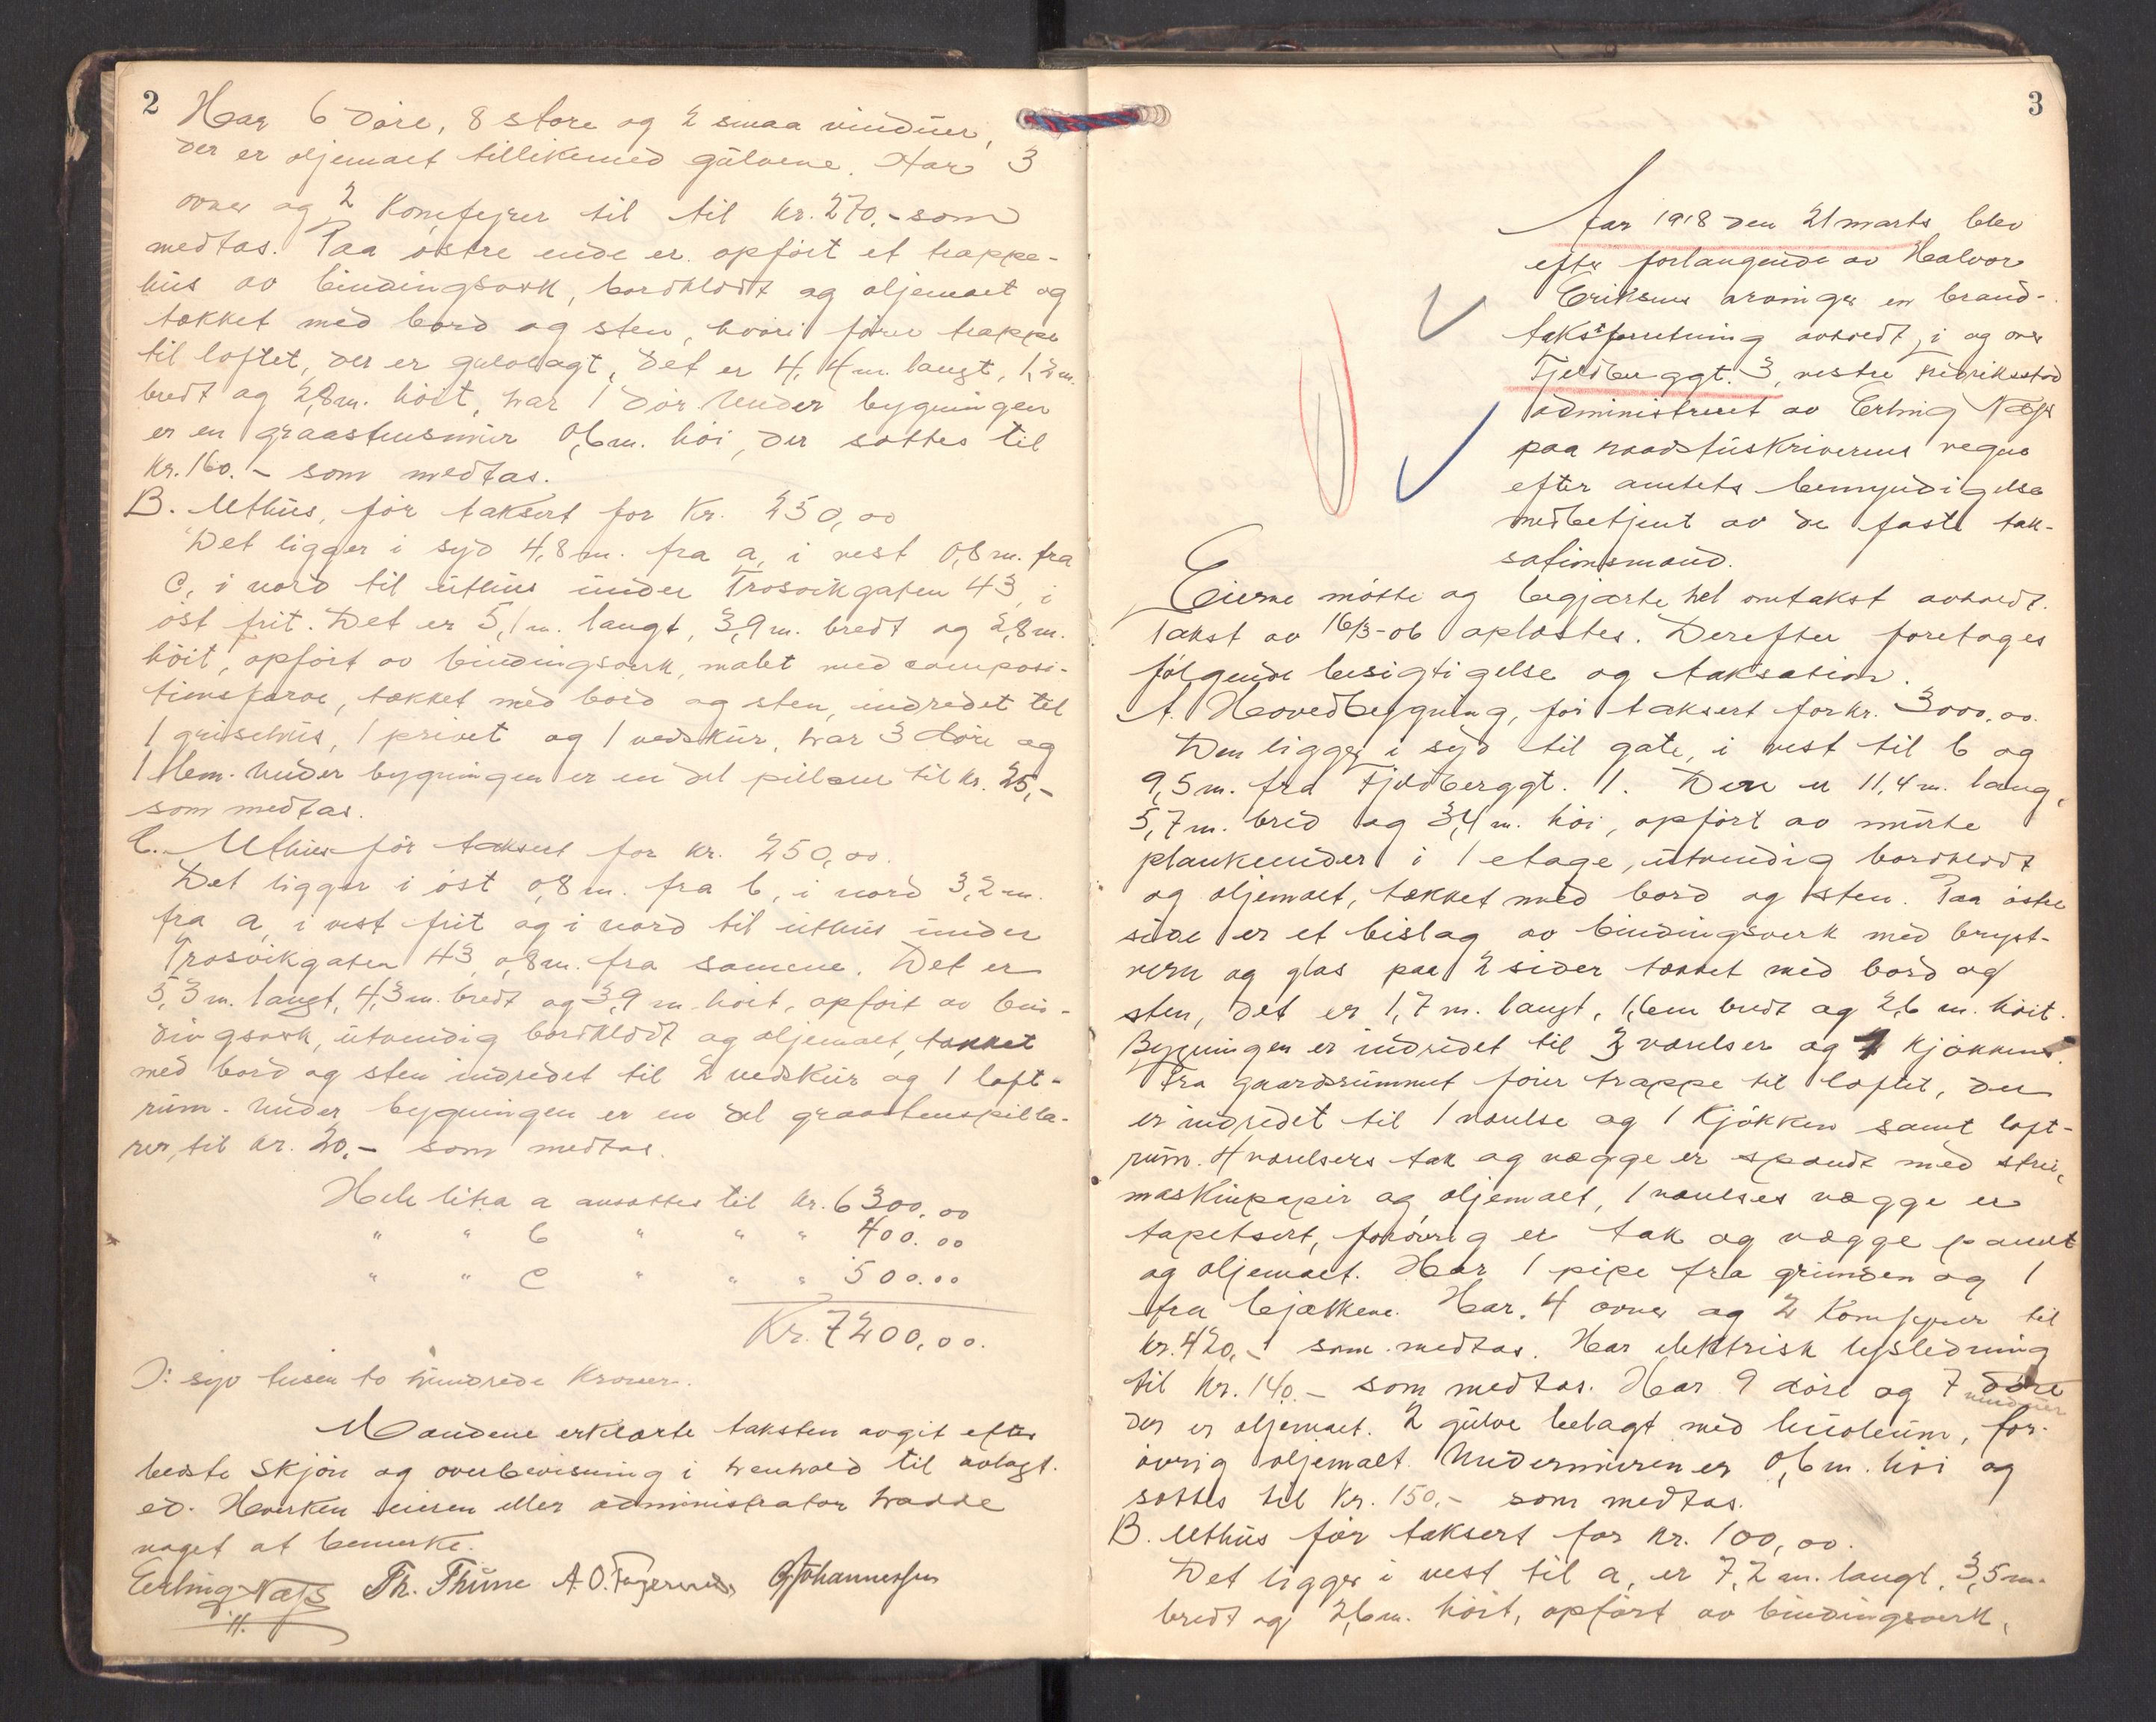 2
Har 6 döre, 8 store og 2 smaa vinduer,
der er oljemalt tillikemed gulvene. Har 3
ovner og 2 Komfyrer til til kr. 270.- som
medtas. Paa östre ende er opfört et trappe-
hus av bindingsverk, bordklödt og oljemalt og
tækket med bord og sten, hvori förer trappe
til loftet, der er gulvlagt, det er 4,4 m. langt, 1,2 m.
bredt og 2,8 m. höit, har 1 dör. Under bygningen
er en graastensmur 0,6 m. höi, der sættes til
Kr. 160.- som medtas.
B. Uthus, för taksert for Kr. 250,00
Det ligger i syd 4,8 m. fra a, i vest 0,8 m. fra
C, i nord til uthus under Trosvikgaten 43, i
öst frit. Det er 5,1 m. langt, 3,9 m. bredt og 2,8 m.
höit, opfört av bindingsverk, malet med composi-
tionsfarve, tækket med bord og sten, indredet til
1 grisehus, 1 privet og 1 vedskur, har 3 döre og
1 lem. Under bygningen er en del pillarer til kr. 25,-
som medtas.
C. Uthus för taksert for kr. 250,00.
Det ligger i öst 0,8 m. fra b, i nord 3,2 m.
fra a, i vest frit og i nord til uthus under
Trosvikgaten 43 0,8 m. fra samme. Det er
5,3 m. langt, 4,3 m. bredt og 3,9 m. höit, opfört av bin-
dingsverk, utvendig bordklödt og oljemalt, tækket
med bord og sten indredet til 2 vedskur og 1 loft-
rum. Under bygningen er en del graastenspilla-
rer, til kr. 20.- som medtas.
Hele litra a ansættes til kr. 6300,00
" " b " " " 400.00
" " C " " " 500.00
Kr. 7200,00.
D: syv tusen to hundrede Kroner.
Mændene erklærte taksten avgit efter
bedste skjön og overbevisning i henhold til avlagt
ed. Hverken eieren eller administrator hadde
noget at bemerke.
Erling Næss Th. Thune A.O. Johannessen
3
Aar 1918 den 21 marts blev
efter forlangende av Halvor
Eriksens arvinger en brand-
takstforretning avholdt i og over
Fjeldberggt. 3, vestre Fredriksstad
administreret av Erling Næss
paa raadstuskriverens vegne
efter amtets bemyndigelse
medbetjent av de faste tak-
sationsmænd.
Eierne mötte og begjærte hel omtakst avholdt.
Takst av 16/3-06 oplæstes. Derefter foretages
fölgende besigtigelse og taksation.
A. Hovedbygning, för taksert for kr. 3000,00.
Den ligger i syd til gate, i vest til b og
9,5 m. fra Fjeldberggt. 1. Den er 11,4 m. lang,
5,7 m. bred og 3,4 m. höi, opfört av murte
plankeender i 1 etage, utvendig bordklödt
og oljemalt, tækket med bord og sten. Paa östre
side er et bislag av bindingsverk med bryst-
vern og glas paa 2 sider tækket med bord og
sten, det er 1,7 m. langt, 1,6 m bredt og 2,6 m. höit.
Bygningen er indredet til 3 værelser og 1 kjökken.
Fra gaardsrummet förer trappe til loftet, der
er indredet til 1 værelse og 1 Kjökken samt loft-
rum. 4 værelsers tak og vægge er spændt med strie,
maskinpapir og oljemalt, 1 værelses vægge er
tapetsert, forövrig er tak og vægge panelt
og oljemalt. Har 1 pipe fra grunden og 1
fra bjælkene. Har 4 ovner og 2 Komfyrer til
kr. 420,- som medtas. Har elektrisk lysledning
til Kr. 140.- som medtas. Har 9 döre og 7 döre
vinduer
der er oljemalt. 2 gulve belagt med linoleum, for-
övrig oljemalt. Undermuren er 0,6 m. höi og
sættes til Kr. 150.- som medtas.
B. Uthus för taksert for kr. 100,00.
Det ligger i vest til a, er 7,2 m. langt, 3,5 m.
bredt og 2,6 m. höit, opfört av bindingsverk,